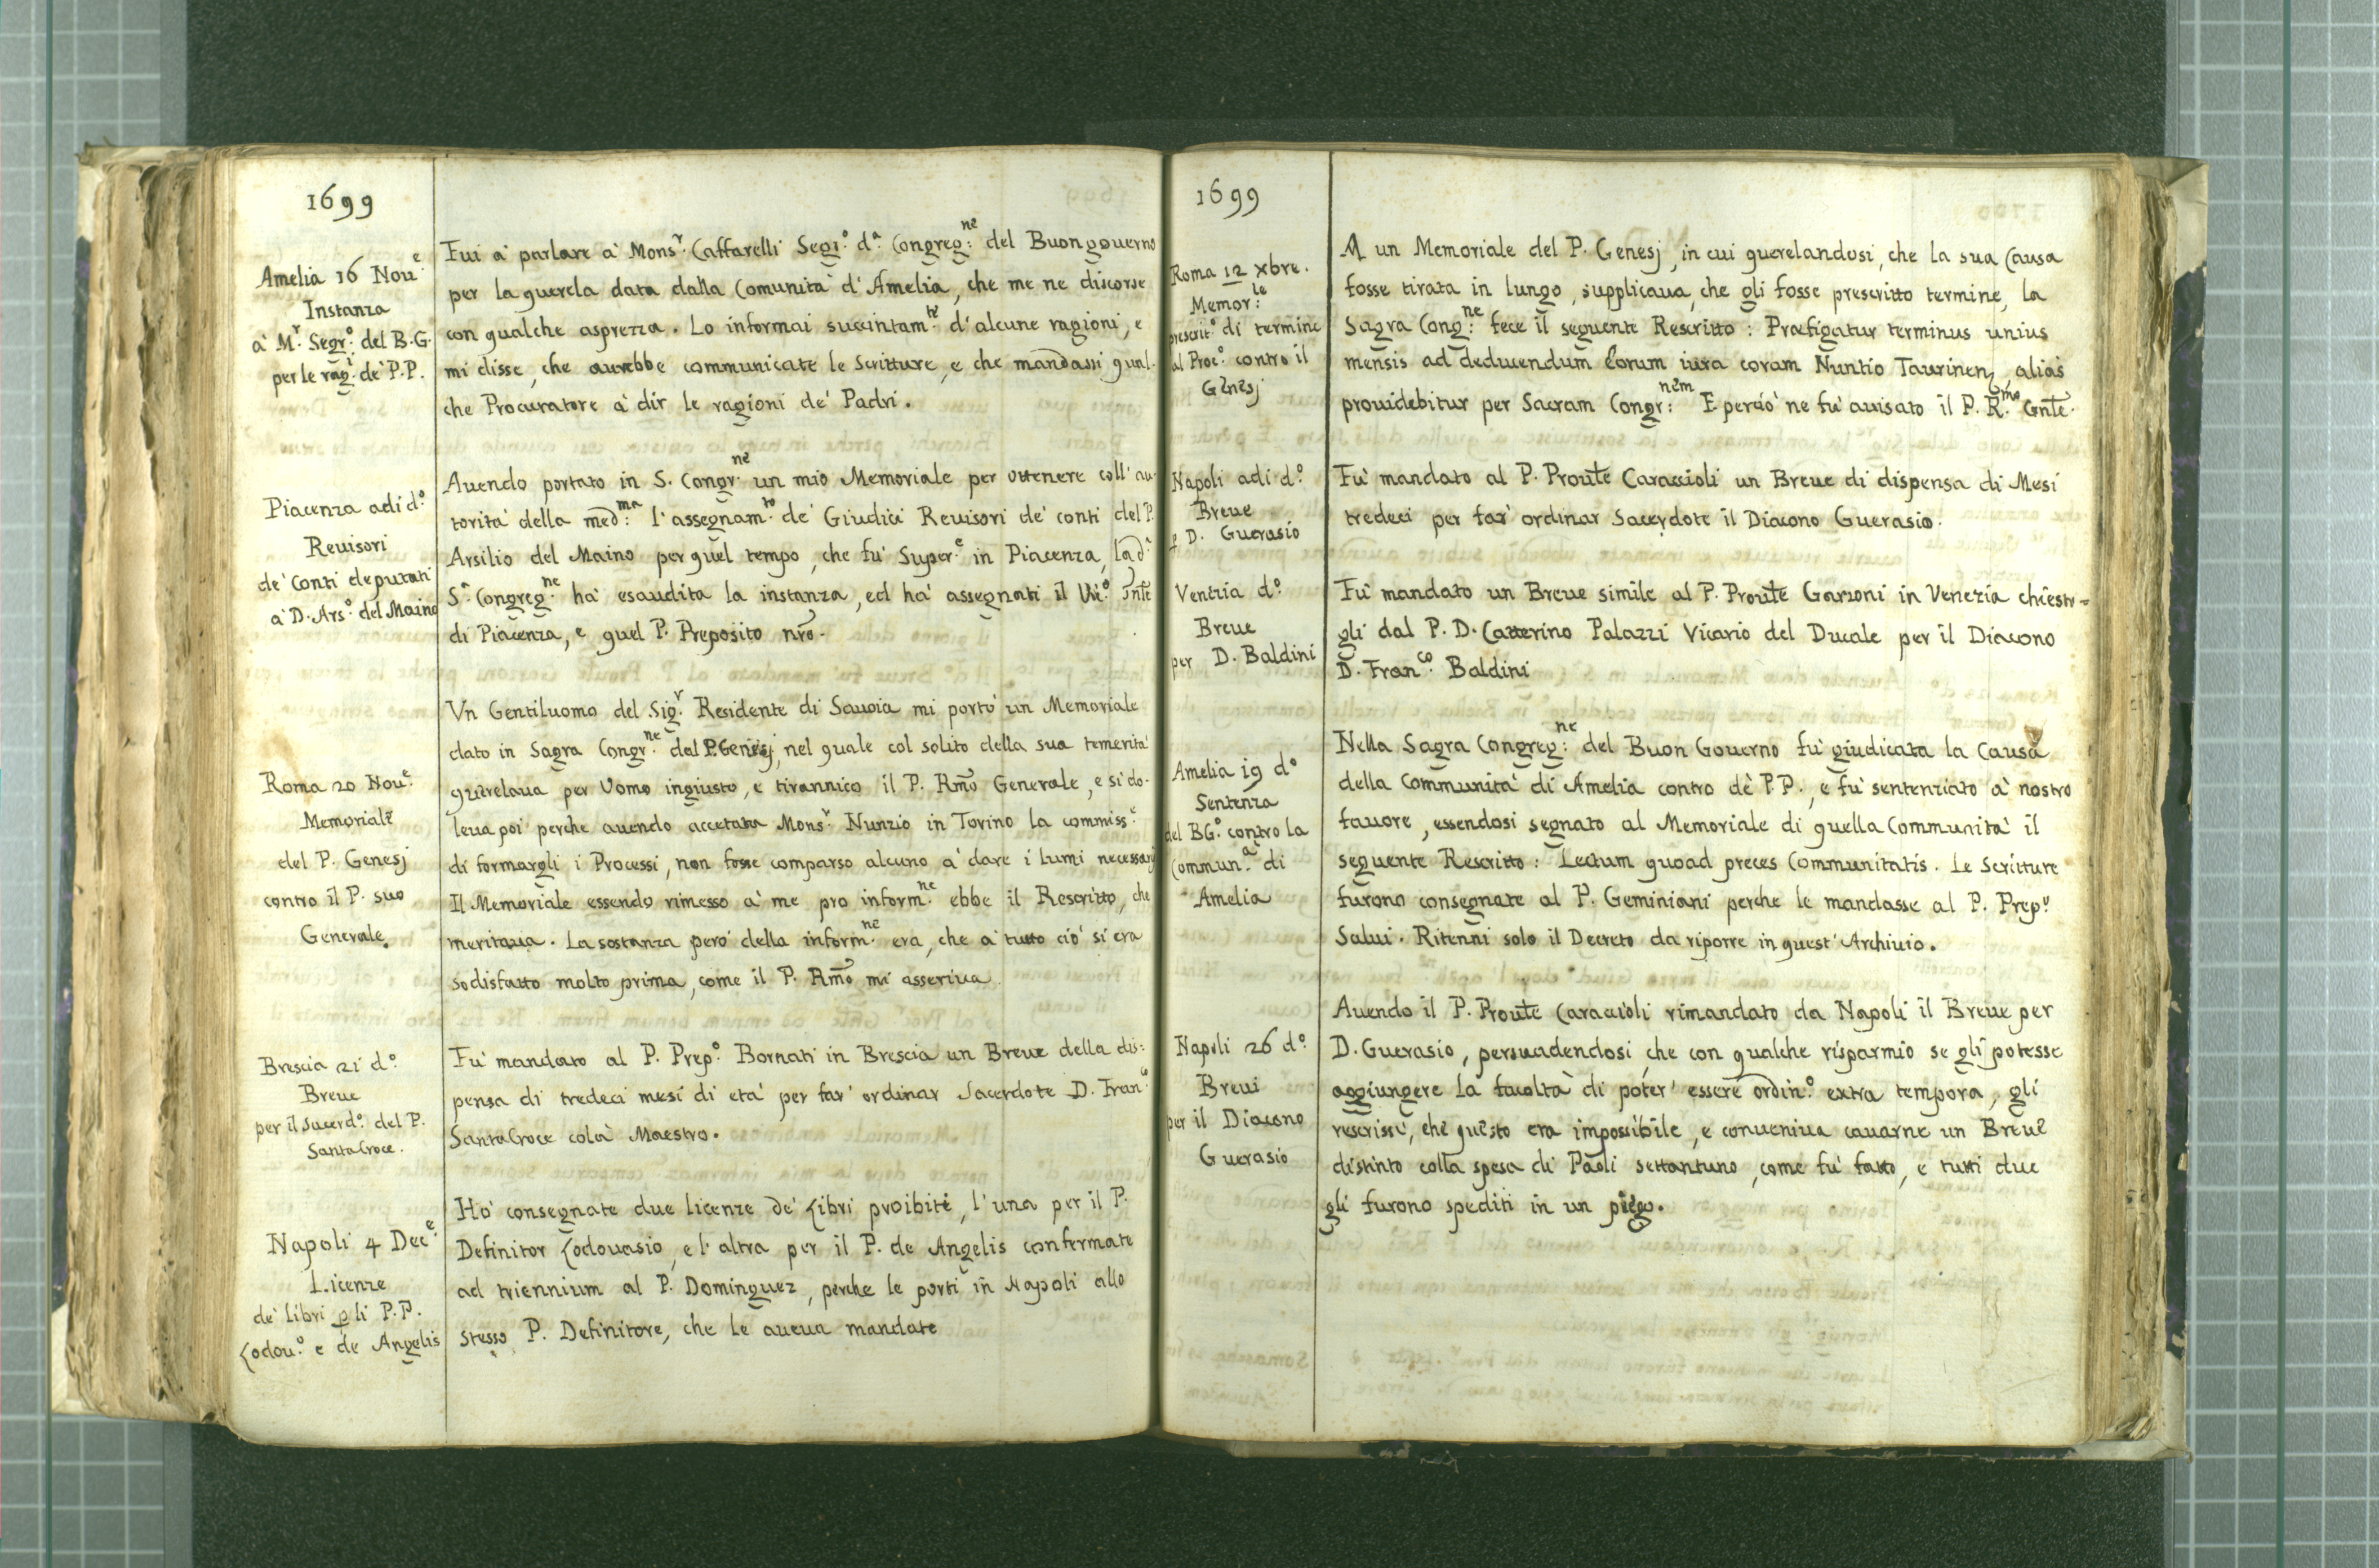 1699
Amelia 16 Nou.e
Instanza
à M.r Segr.o del B.G.
per le rag.i de' P.P.
Fui à parlare à Mons.r Caffarelli Segr.o d.a Congreg.ne del Buongouerno
per la querela data dalla Comunità d'Amelia, che me ne discorse
con qualche asprezza. Lo informai succintam.te d'alcune ragioni, e
mi disse, che aurebbe communicate le scritture, e che mandassi qual-
che Procuratore à dir le ragioni de' Padri.
Piacenza adi d.o
Reuisori
de' conti deputati
à D. Ars.o del Maino
Auendo portato in S. Congr.ne un mio Memoriale per ottenere coll'au-
torità della med.ma l'assegnam.to de' Giudici Reuisori de' conti del P.
Arsilio del Maino per quel tempo, che fù Super.e in Piacenza, la d.a
S.a Congreg.ne hà esaudita la instanza, ed hà assegnati il
di Piacenza, e quel P. Preposito nro.
Roma 20 Nou.e
Memoriale
del P. Genesj
contro il P. suo
Generale.
Vn Gentiluomo del Sig.r Residente di Sauoia mi portò un Memoriale
dato in Sagra Congr.ne dal P. Genesj, nel quale col solito della sua temerità
querelaua per Uomo ingiusto, e tirannico il P. Rmo Generale, e si do-
leua poi perche auendo accetata Mons.r Nunzio in Torino la commiss.e
di formargli i Processi, non fosse comparso alcuno à dare i lumi necessarj
Il Memoriale essendo rimesso à me pro inform.ne ebbe il Rescritto, che
meritaua. La sostanza però della inform.ne era, che à tutto ciò si era
sodisfatto molto prima, come il P. Rmo mi asseriua
Brescia 21 d.o
Breue
per il Sacerd.o del P.
SantaCroce.
Fù mandato al P. Prep.o Bornati in Brescia un Breue della dis-
pensa di tredeci mesi di età per far' ordinar Sacerdote D. Fran.o
SantaCroce colà Maestro.
Napoli 4 Dec.e
Licenze
de' libri p li P.P.
Lodou.o e de Angelis
Hò consegnate due licenze de' Libri proibiti, l'una per il P.
Definitor Lodouasio, e l'altra per il P. de Angelis confermate
ad triennium al P. Dominguez, perche le porti in Napoli allo
stesso P. Definitore, che le aueua mandate
1699
Roma 12 xbre.
Memor.le
prescrit.o di termine
al Proc.o contro il
Genesj
A un Memoriale del P. Genesj, in cui querelandosi, che la sua Causa
fosse tirata in lungo, supplicaua, che gli fosse prescritto termine, la
Sagra Cong.ne fece il seguente Rescritto: Praefigatur terminus unius
mensis ad deducendum eorum iura coram Nuntio Taurinen, alias
prouidebitur per Sacram Congr.nem E perciò ne fu' auisato il P. R.mo Gnle.
Napoli adi d.o
Breue
p D. Guerasio
Fù mandato al P. Proule Caraccioli un Breue di dispensa di Mesi
tredeci per far' ordinar Sacerdote il Diacono Guerasio.
Venezia d.o
Breue
per D. Baldini
Fù mandato un Breue simile al P. Proule Garzoni in Venezia chiesto-
gli dal P. D. Catterino Palazzi Vicario del Ducale per il Diacono
D. Fran.co Baldini
Amelia 19 d.o
Sentenza
del BG.o contro la
Commun.a di
Amelia
Nella Sagra Congreg.ne del Buon Gouerno fù giudicata la Causa
della Communità di Amelia contro de' P.P., e fù sentenziato à nostro
fauore, essendosi segnato al Memoriale di quella Communità il
seguente Rescritto: Lectum quoad preces Communitatis. Le Scritture
furono consegnate al P. Geminiani perche le mandasse al P. Prep.o
Salui. Ritenni solo il Decreto da riporre in quest'Archiuio.
Napoli 26 d.o
Breui
per il Diacono
Guerasio
Auendo il P. Proule Caraccioli rimandato da Napoli il Breue per
D. Guerasio, persuadendosi, che con qualche risparmio se gli potesse
aggiungere la facoltà di poter' essere ordin.o extra tempora, gli
rescrissi, che questo era impossibile, e conueniua cauarne un Breue
distinto colla spesa di Paoli settantuno, come fù fatto, e tutti due
gli furono spediti in un piego.